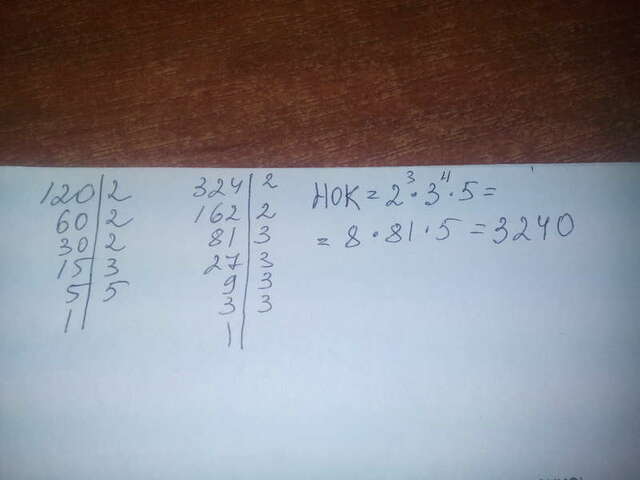 120 | 2
60 | 2
30 | 2
15 | 3
5 | 5
1 |
324 | 2
162 | 2
81 | 3
27 | 3
9 | 3
3 | 3
1 |
НОК = 2³ · 3⁴ · 5 =
= 8 · 81 · 5 = 3240